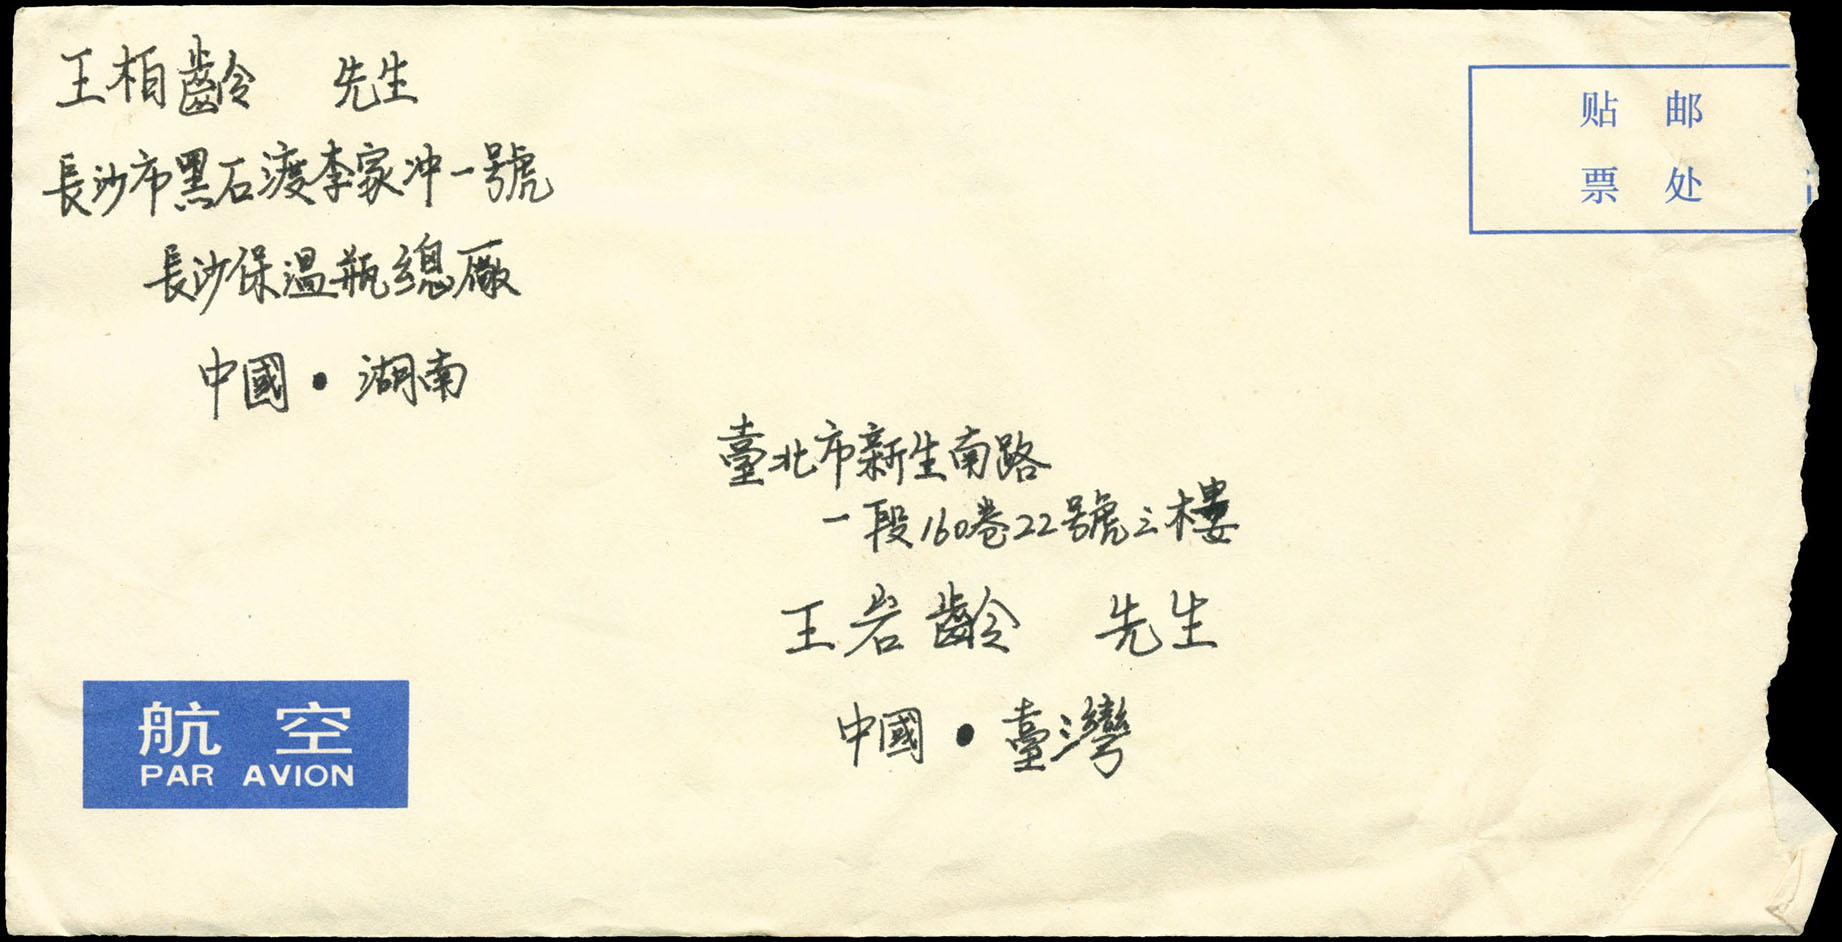 王柏齡 先生
長沙市黑石渡李家冲一號
長沙保温瓶總廠
中國·湖南
贴 邮
票 处
臺北市新生南路
一段160巷22號三樓
王岩齡 先生
中國·臺灣
航空
PAR AVION